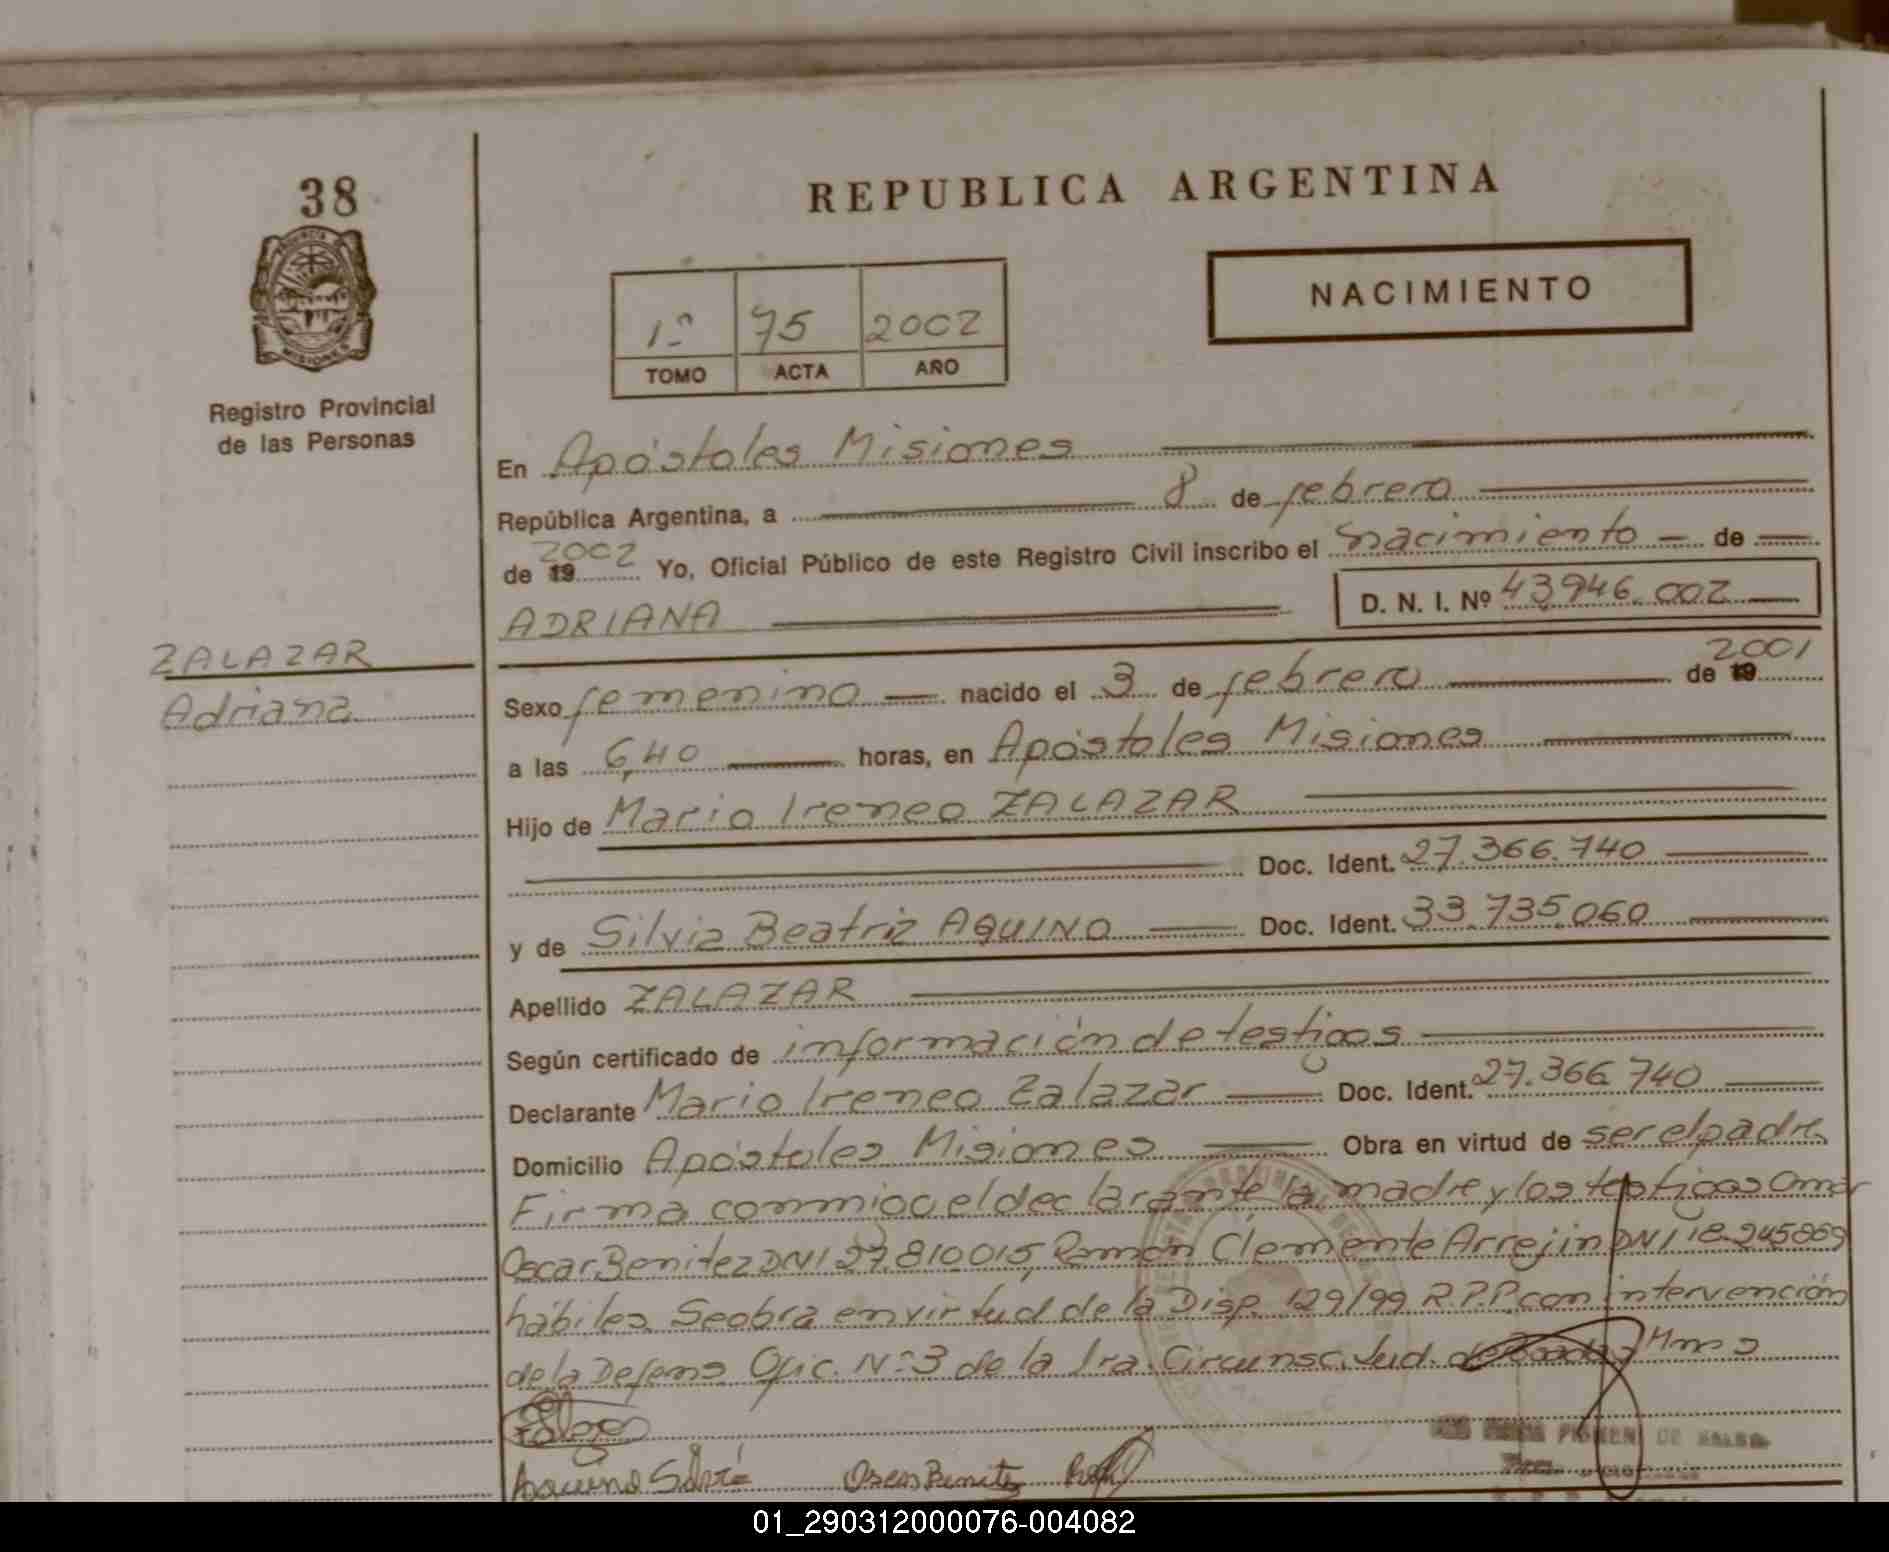 38
REPUBLICA ARGENTINA
PROVINCIA
MISIONES
NACIMIENTO
1º 75 2002
TOMO ACTA AÑO
Registro Provincial
de las Personas
En Apóstoles Misiones
República Argentina, a 8 de febrero
de 19 2002 Yo, Oficial Público de este Registro Civil inscribo el nacimiento de
ADRIANA D. N. I. Nº 43.946.002
ZALAZAR
Adriana
Sexo femenino nacido el 3 de febrero de 19 2001
a las 6,40 horas, en Apóstoles Misiones
Hijo de Mario Ireneo ZALAZAR
Doc. Ident. 27.366.740
y de Silvia Beatriz AQUINO Doc. Ident. 33.735.060
Apellido ZALAZAR
Según certificado de información de testigos
Declarante Mario Ireneo Zalazar Doc. Ident. 27.366.740
Domicilio Apóstoles Misiones Obra en virtud de ser el padre
Firma conmigo el declarante, la madre y los testigos Omar
Oscar Benitez DNI 27.810.015, Ramón Clemente Arrejin DNI 18.245.869
hábiles. Se obra en virtud de la Disp. 129/99 R.P.P. con intervención
de la Defens Ofic. Nº 3 de la 1ra. Circunsc. Jud. de Mnes
Benitez
01_290312000076-004082